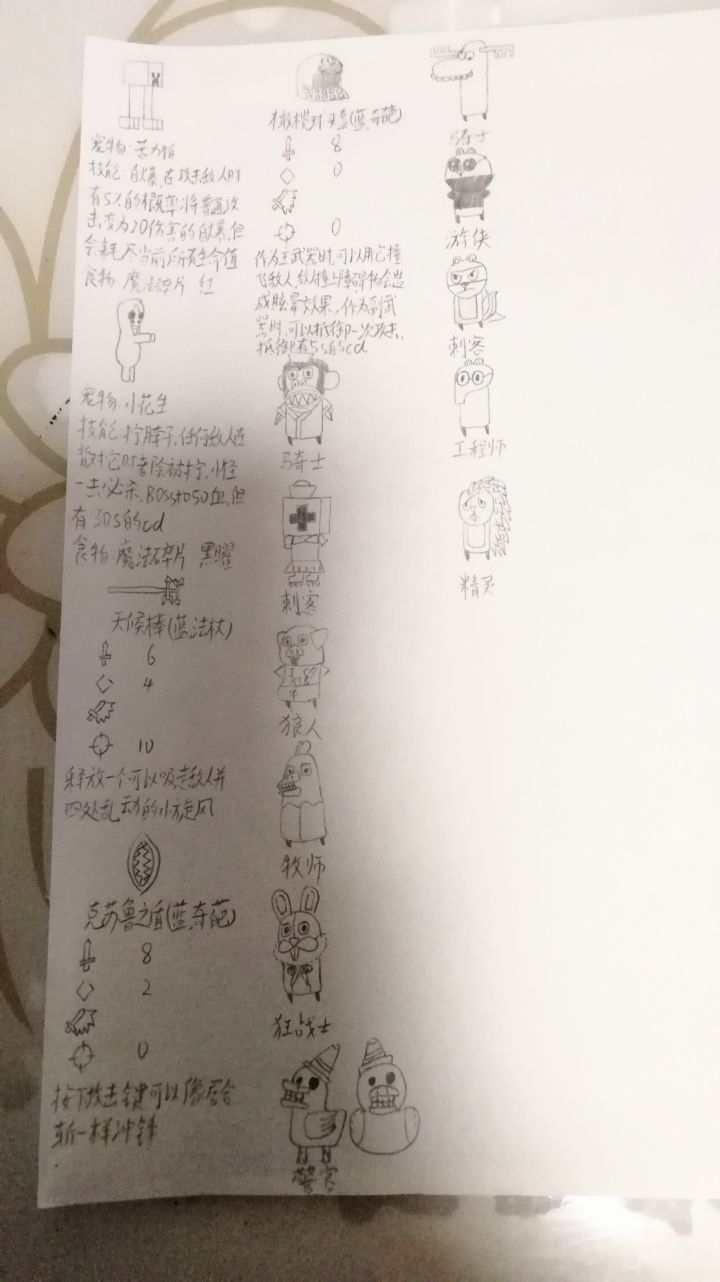 宠物:苦力怕
技能:自爆,在攻击敌人时
有5%的概率将普通攻
击,变为20伤害的自爆,但
会耗尽当前所有生命值
食物:魔法碎片 红
宠物:小花生
技能:拧脖子,任何敌人在
背对它时都会被拧,小怪
一击必杀,Boss扣50血,但
有30s的cd
食物:魔法碎片 黑曜
天候棒(蓝,法杖)
6
4
10
释放一个可以吸走敌人并
四处乱动的小旋风
克苏鲁之盾(蓝,夺葩)
8
2
0
按下攻击键可以像居合
斩一样冲锋
橄榄球头盔(蓝,夺葩)
8
0
0
作为主武器时,可以用它撞
飞敌人,敌人撞上障碍物会造
成眩晕效果,作为副武
器时,可以抵御一次攻击,
抵御有5s的cd
骑士
刺客
狼人
牧师
狂战士
警官
骑士
游侠
刺客
工程师
精灵